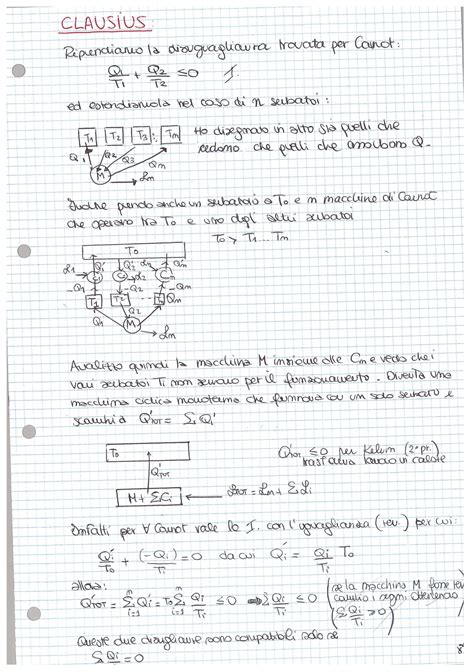 CLAUSIUS
Riprendiamo la disuguaglianza trovata per Carnot:
Q1/T1 + Q2/T2 ≤ 0   I.
ed estendiamola nel caso di n serbatoi:
T1 T2 T3 ... Tm
Ho disegnato in alto sia quelli che
cedono che quelli che assorbono Q.
Q1 Q2 Q3 Qm
M Lm
Inoltre prendo anche un serbatoio a T0 e m macchine di Carnot
che operano tra T0 e uno degli altri serbatoi
T0 > T1...Tm
T0
L1 Q'1 Q'2 Q'm
C1 C2 L2 Cm
-Q1 -Q2 -Qm
T1 T2 ... Qm
Q1 Q2
M
Lm
Analizzo quindi la macchina M insieme alle Cm e vedo che i
vari serbatoi Ti non servono per il funzionamento. Diventa una
macchina ciclica monoterma che funziona con un solo serbatoio e
scambia Q'TOT = Σ Q'i
T0
Q'TOT
Q'TOT ≤ 0 per Kelvin (2° pr.)
lavoro in calore
M + ΣCi
LTOT = Lm + ΣLi
Infatti per ∀ Carnot vale la I. con l'uguaglianza (rev.) per cui:
Q'i/T0 + (-Qi)/Ti = 0 da cui Q'i = Qi/Ti T0
allora:
Q'TOT = Σ Q'i = T0 Σ Qi/Ti ≤ 0 ⇒ Σ Qi/Ti ≤ 0
(se la macchina M fosse rev
cambio i segni ottenendo
(Σ Qi/Ti ≥ 0)
Queste due disuguaglianze sono compatibili solo se
Σ Qi/Ti = 0
8